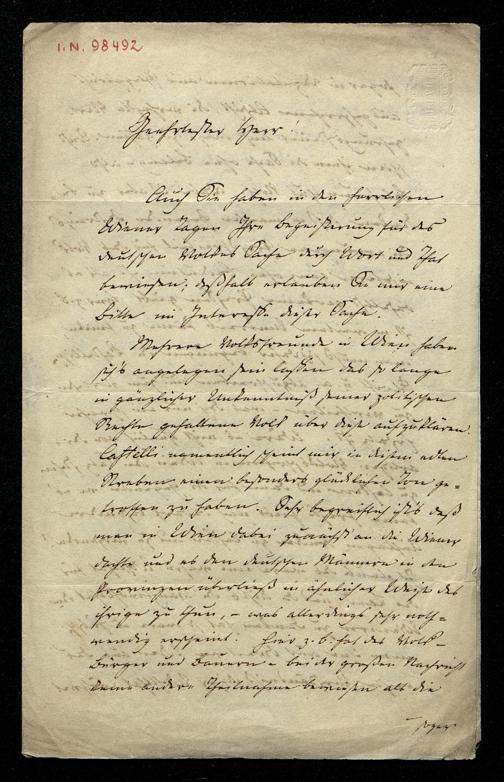 I.N. 98492
Geehrtester Herr!
Auch Sie haben in den herrlichen
Wiener Tagen Ihre Begeisterung für des
deutschen Volkes Sache durch Wort und That
bewiesen; deßhalb erlauben Sie mir eine
Bitte im Interesse dieser Sache.
Mehrere Volksfreunde in Wien haben
sich's angelegen sein lassen das so lange
in gänzlicher Unkenntniß seiner politischen
Rechte gehaltene Volk über diese aufzuklären.
Castelli namentlich scheint mir in diesem edlen
Streben einen besonders glücklichen Ton ge-
troffen zu haben. Sehr begreiflich ist's daß
man in Wien dabei zunächst an die Wiener
dachte und es den deutschen Männern in den
Provinzen überließ in ähnlicher Weise das
ihrige zu thun, – was allerdings sehr noth-
wendig erscheint. Hier z. b. hat das Volk –
Bürger und Bauern – bei der großen Nachricht
keine andere Theilnahme bewiesen als die